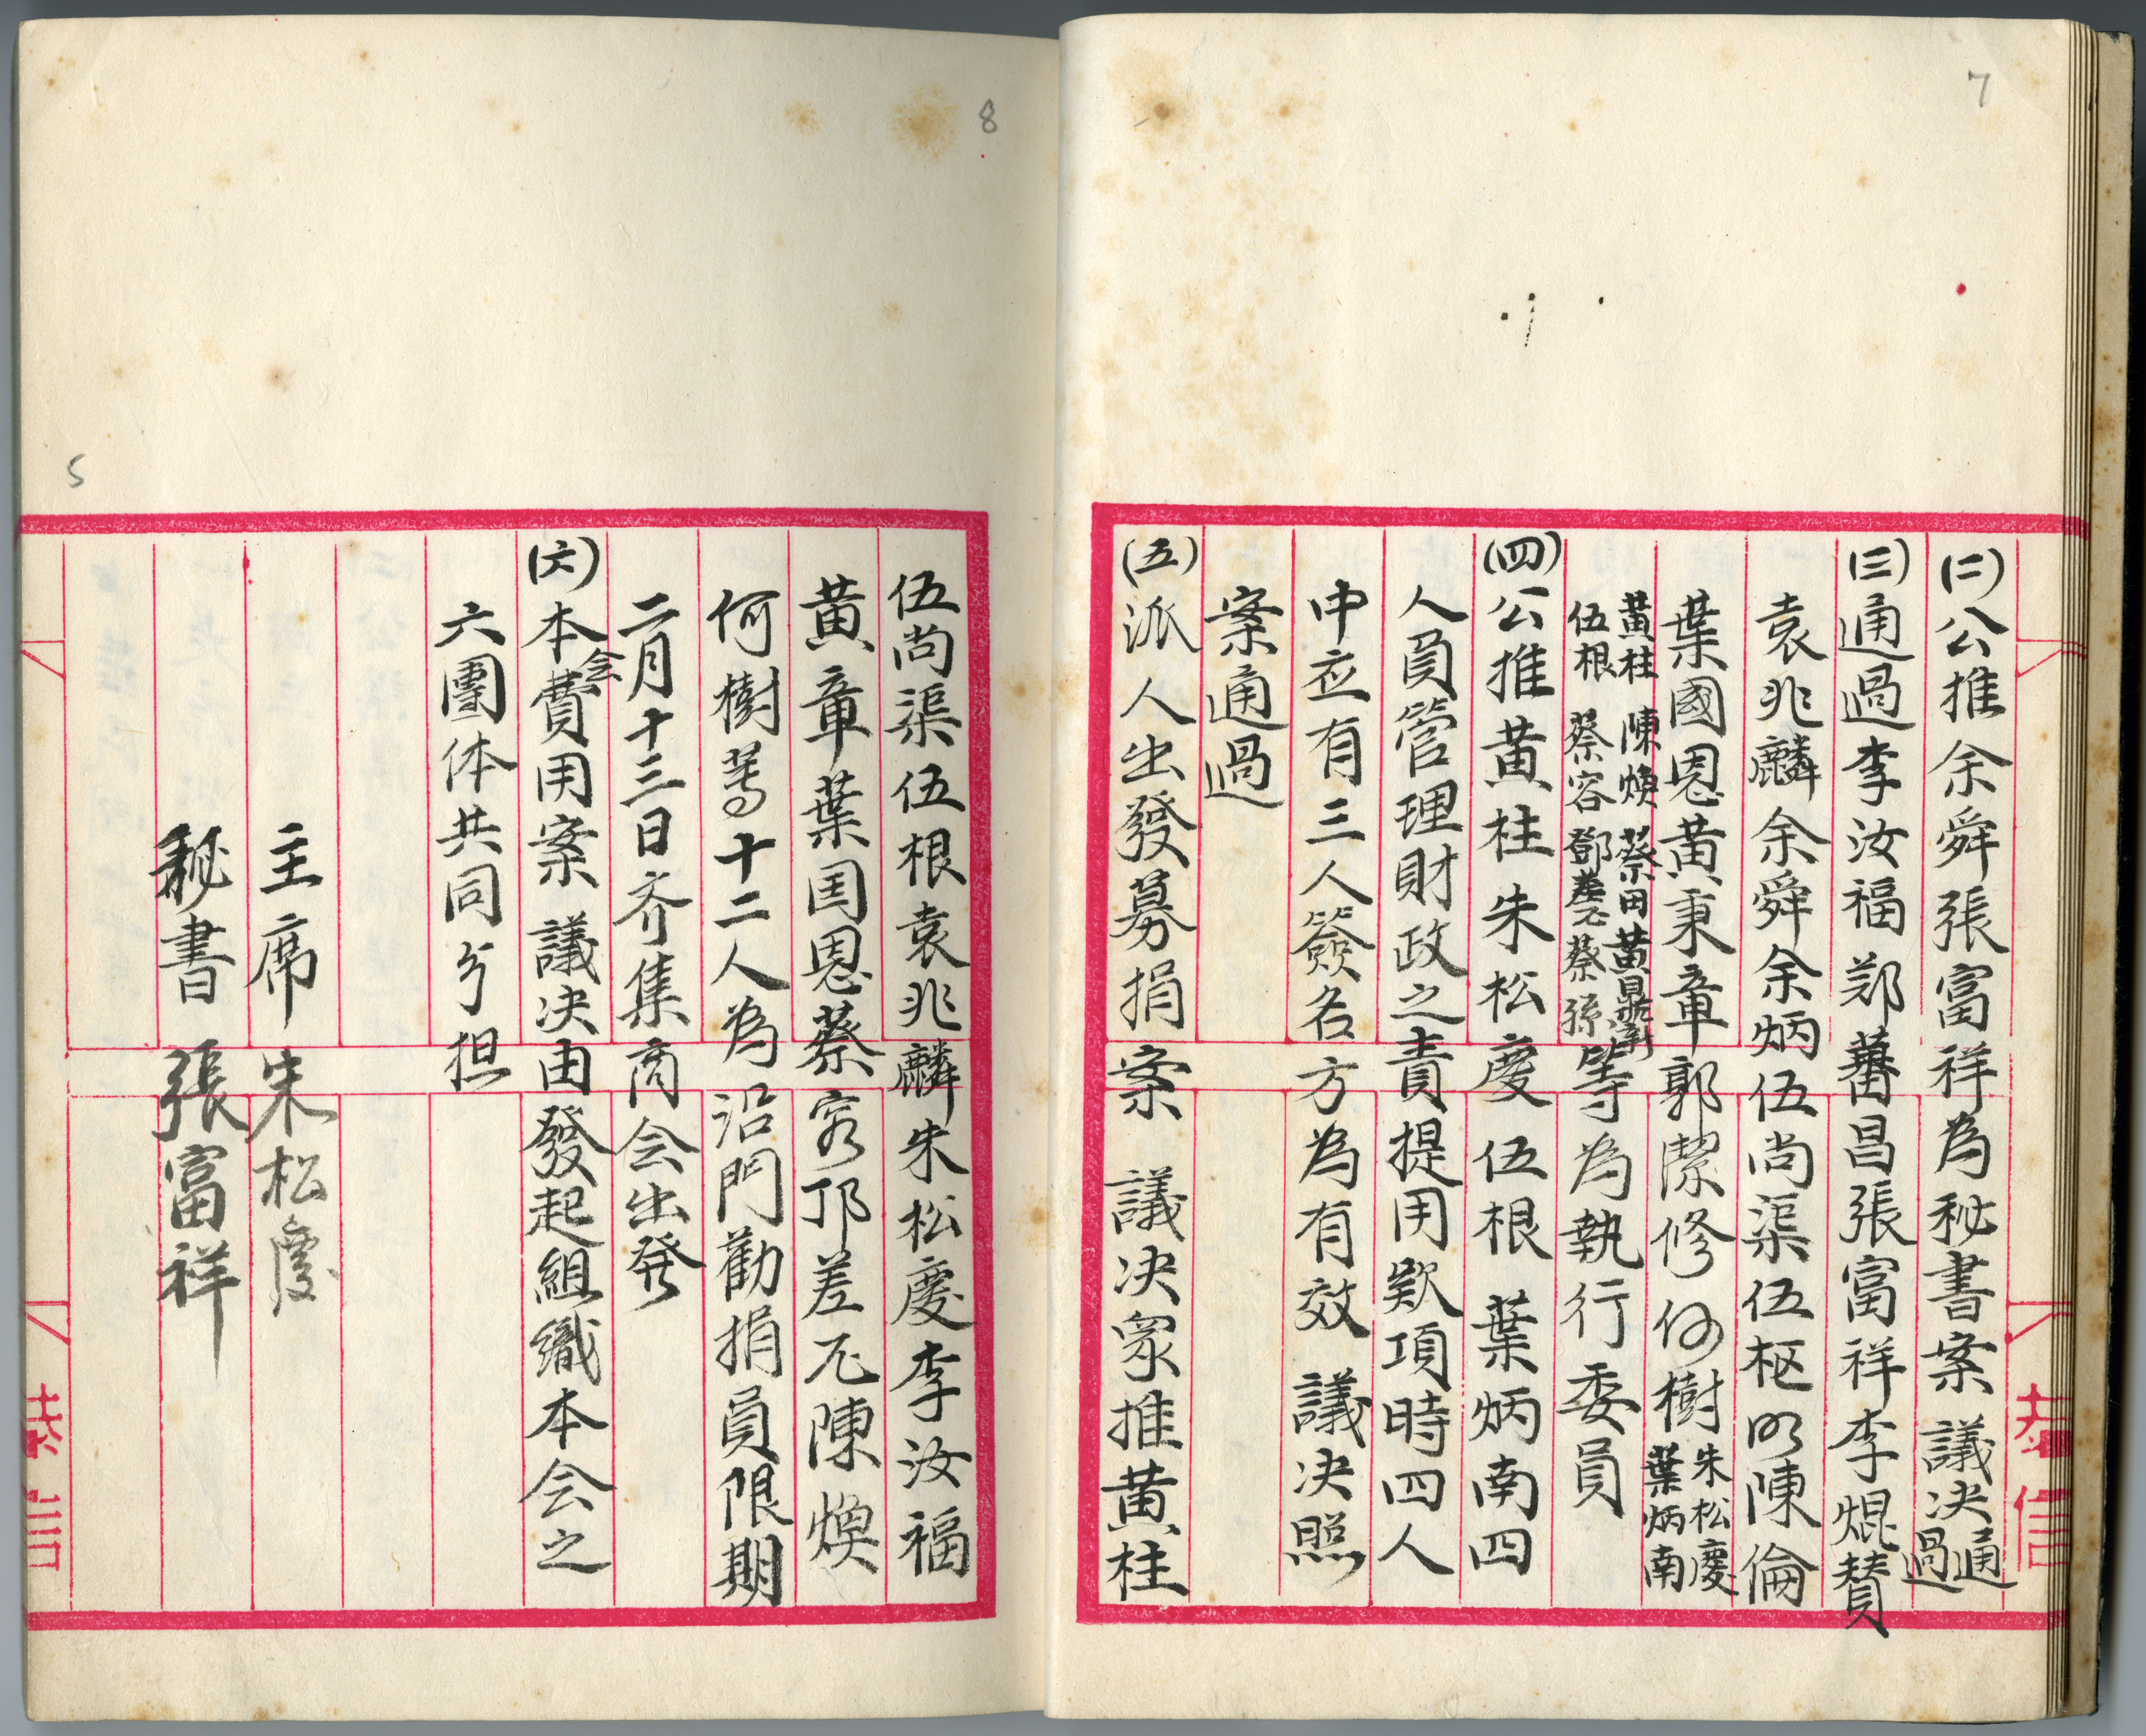 7
(二)公推余舜張富祥為秘書案 議决通過
(三)通過李汝福鄭蕃昌張富祥李焜賛
袁兆麟余舜余炳伍尚渠伍枢明陳倫
葉國恩黄秉章郭潔修何樹朱松慶葉炳南
黄桂 陳煥 蔡田 黄鼎
伍根 蔡容 蔡孫等為執行委員
(四)公推黄桂朱松慶伍根葉炳南四
人負管理財政之責提用欵項時四人
中应有三人簽名方為有效 議决照
案通過
(五)派人出發募捐案 議决眾推黄桂
8
伍尚渠伍根袁兆麟朱松慶李汝福
黄章葉国恩蔡容邝差元陳煥
何樹等十二人為沿門勸捐員限期
二月十三日齐集商会出発
(六)本会費用案 議决由發起組織本会之
六團体共同分担
主席 朱松慶
秘書 張富祥
5